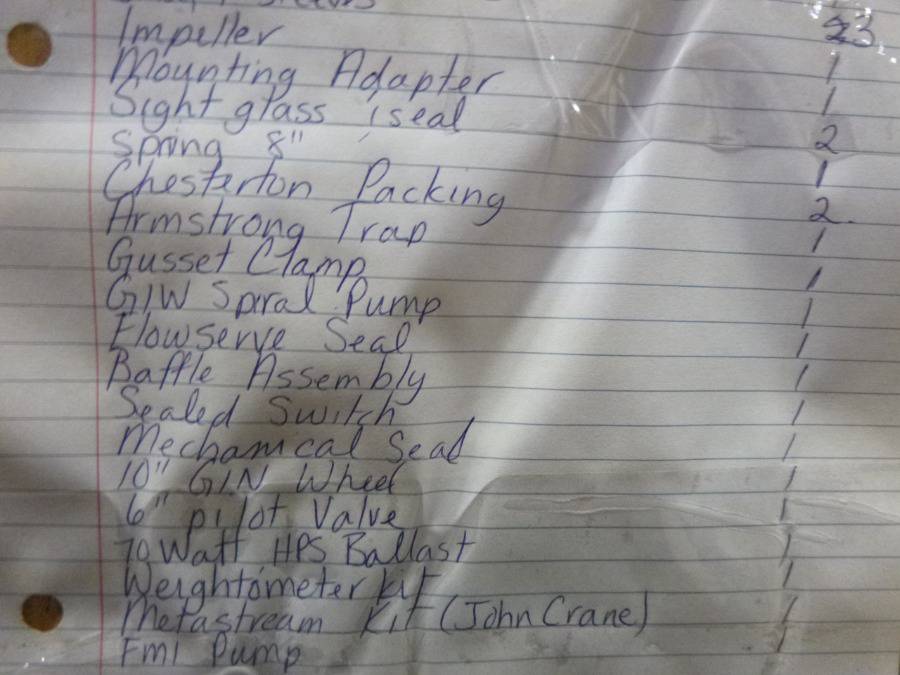 Impeller 23
Mounting Adapter 1
Sight glass ; seal 1
Spring 8" 2
Chesterton Packing 1
Armstrong Trap 2
Gusset Clamp 1
GIW Spiral Pump 1
Flowserve Seal 1
Baffle Assembly 1
Sealed Switch 1
Mechanical Seal 1
10" GIN Wheel 1
6" pilot Valve 1
70 Watt HPS Ballast 1
Weightometer kit 1
Metastream Kit (John Crane) 1
FMI Pump 1
1